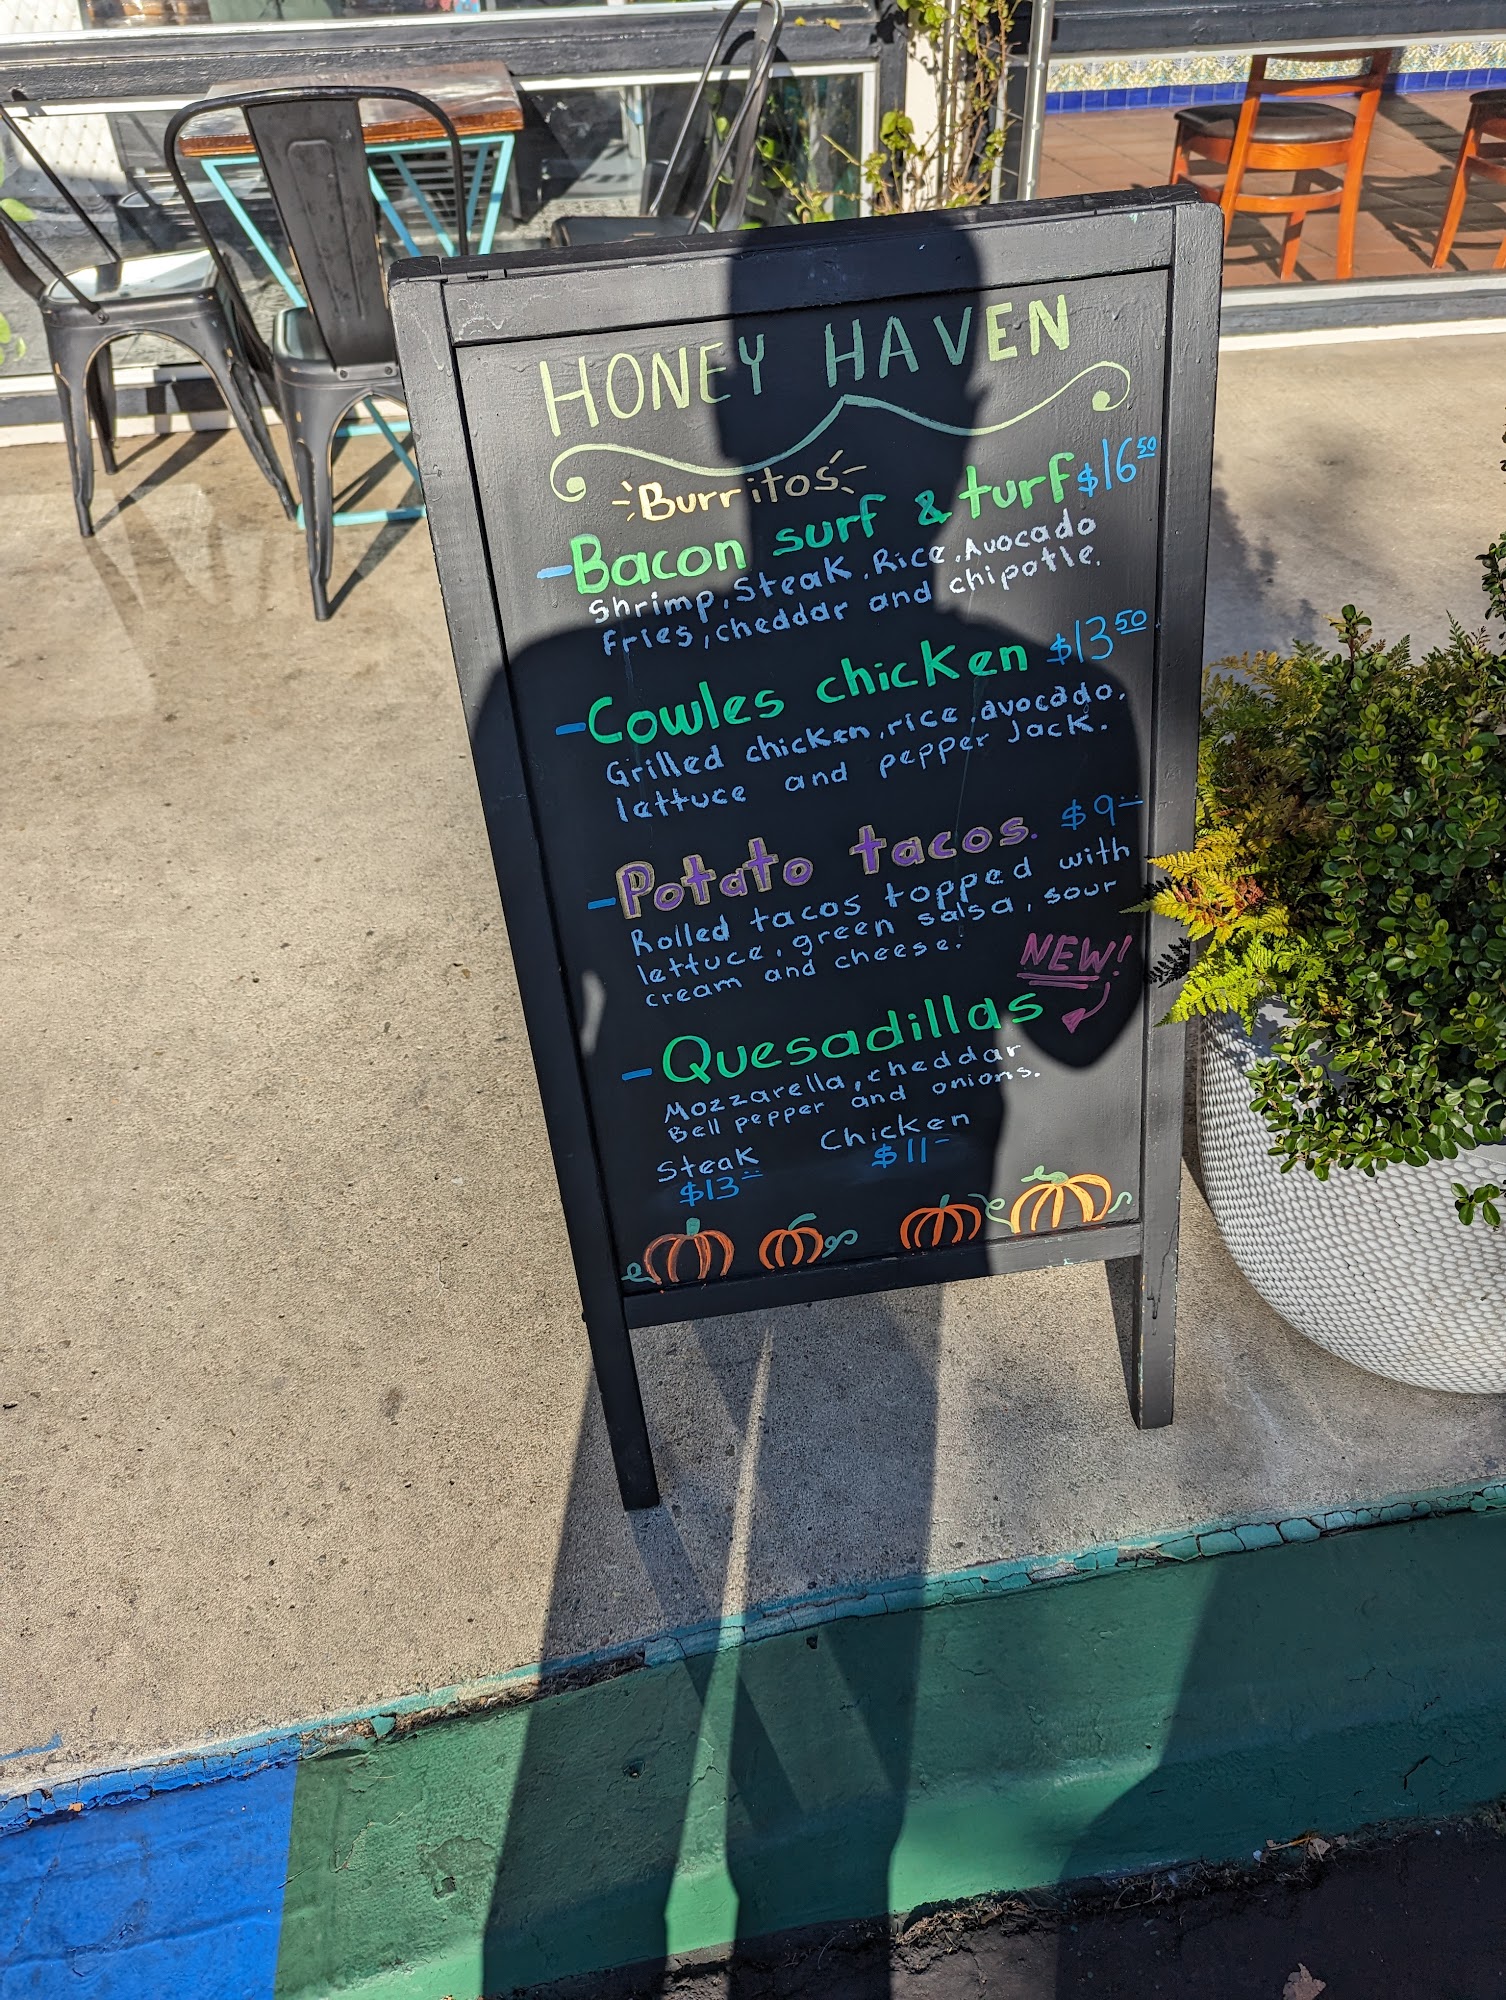 HONEY HAVEN
Burritos
-Bacon surf & turf $16.50
Shrimp, Steak, Rice, Avocado
fries, cheddar and chipotle.
-Cowles chicken $13.50
Grilled chicken, rice, avocado,
lettuce and pepper Jack.
-Potato tacos. $9
Rolled tacos topped with
lettuce, green salsa, sour
cream and cheese.
NEW!
-Quesadillas
Mozzarella, cheddar
Bell pepper and onions.
Steak Chicken
$13 $11